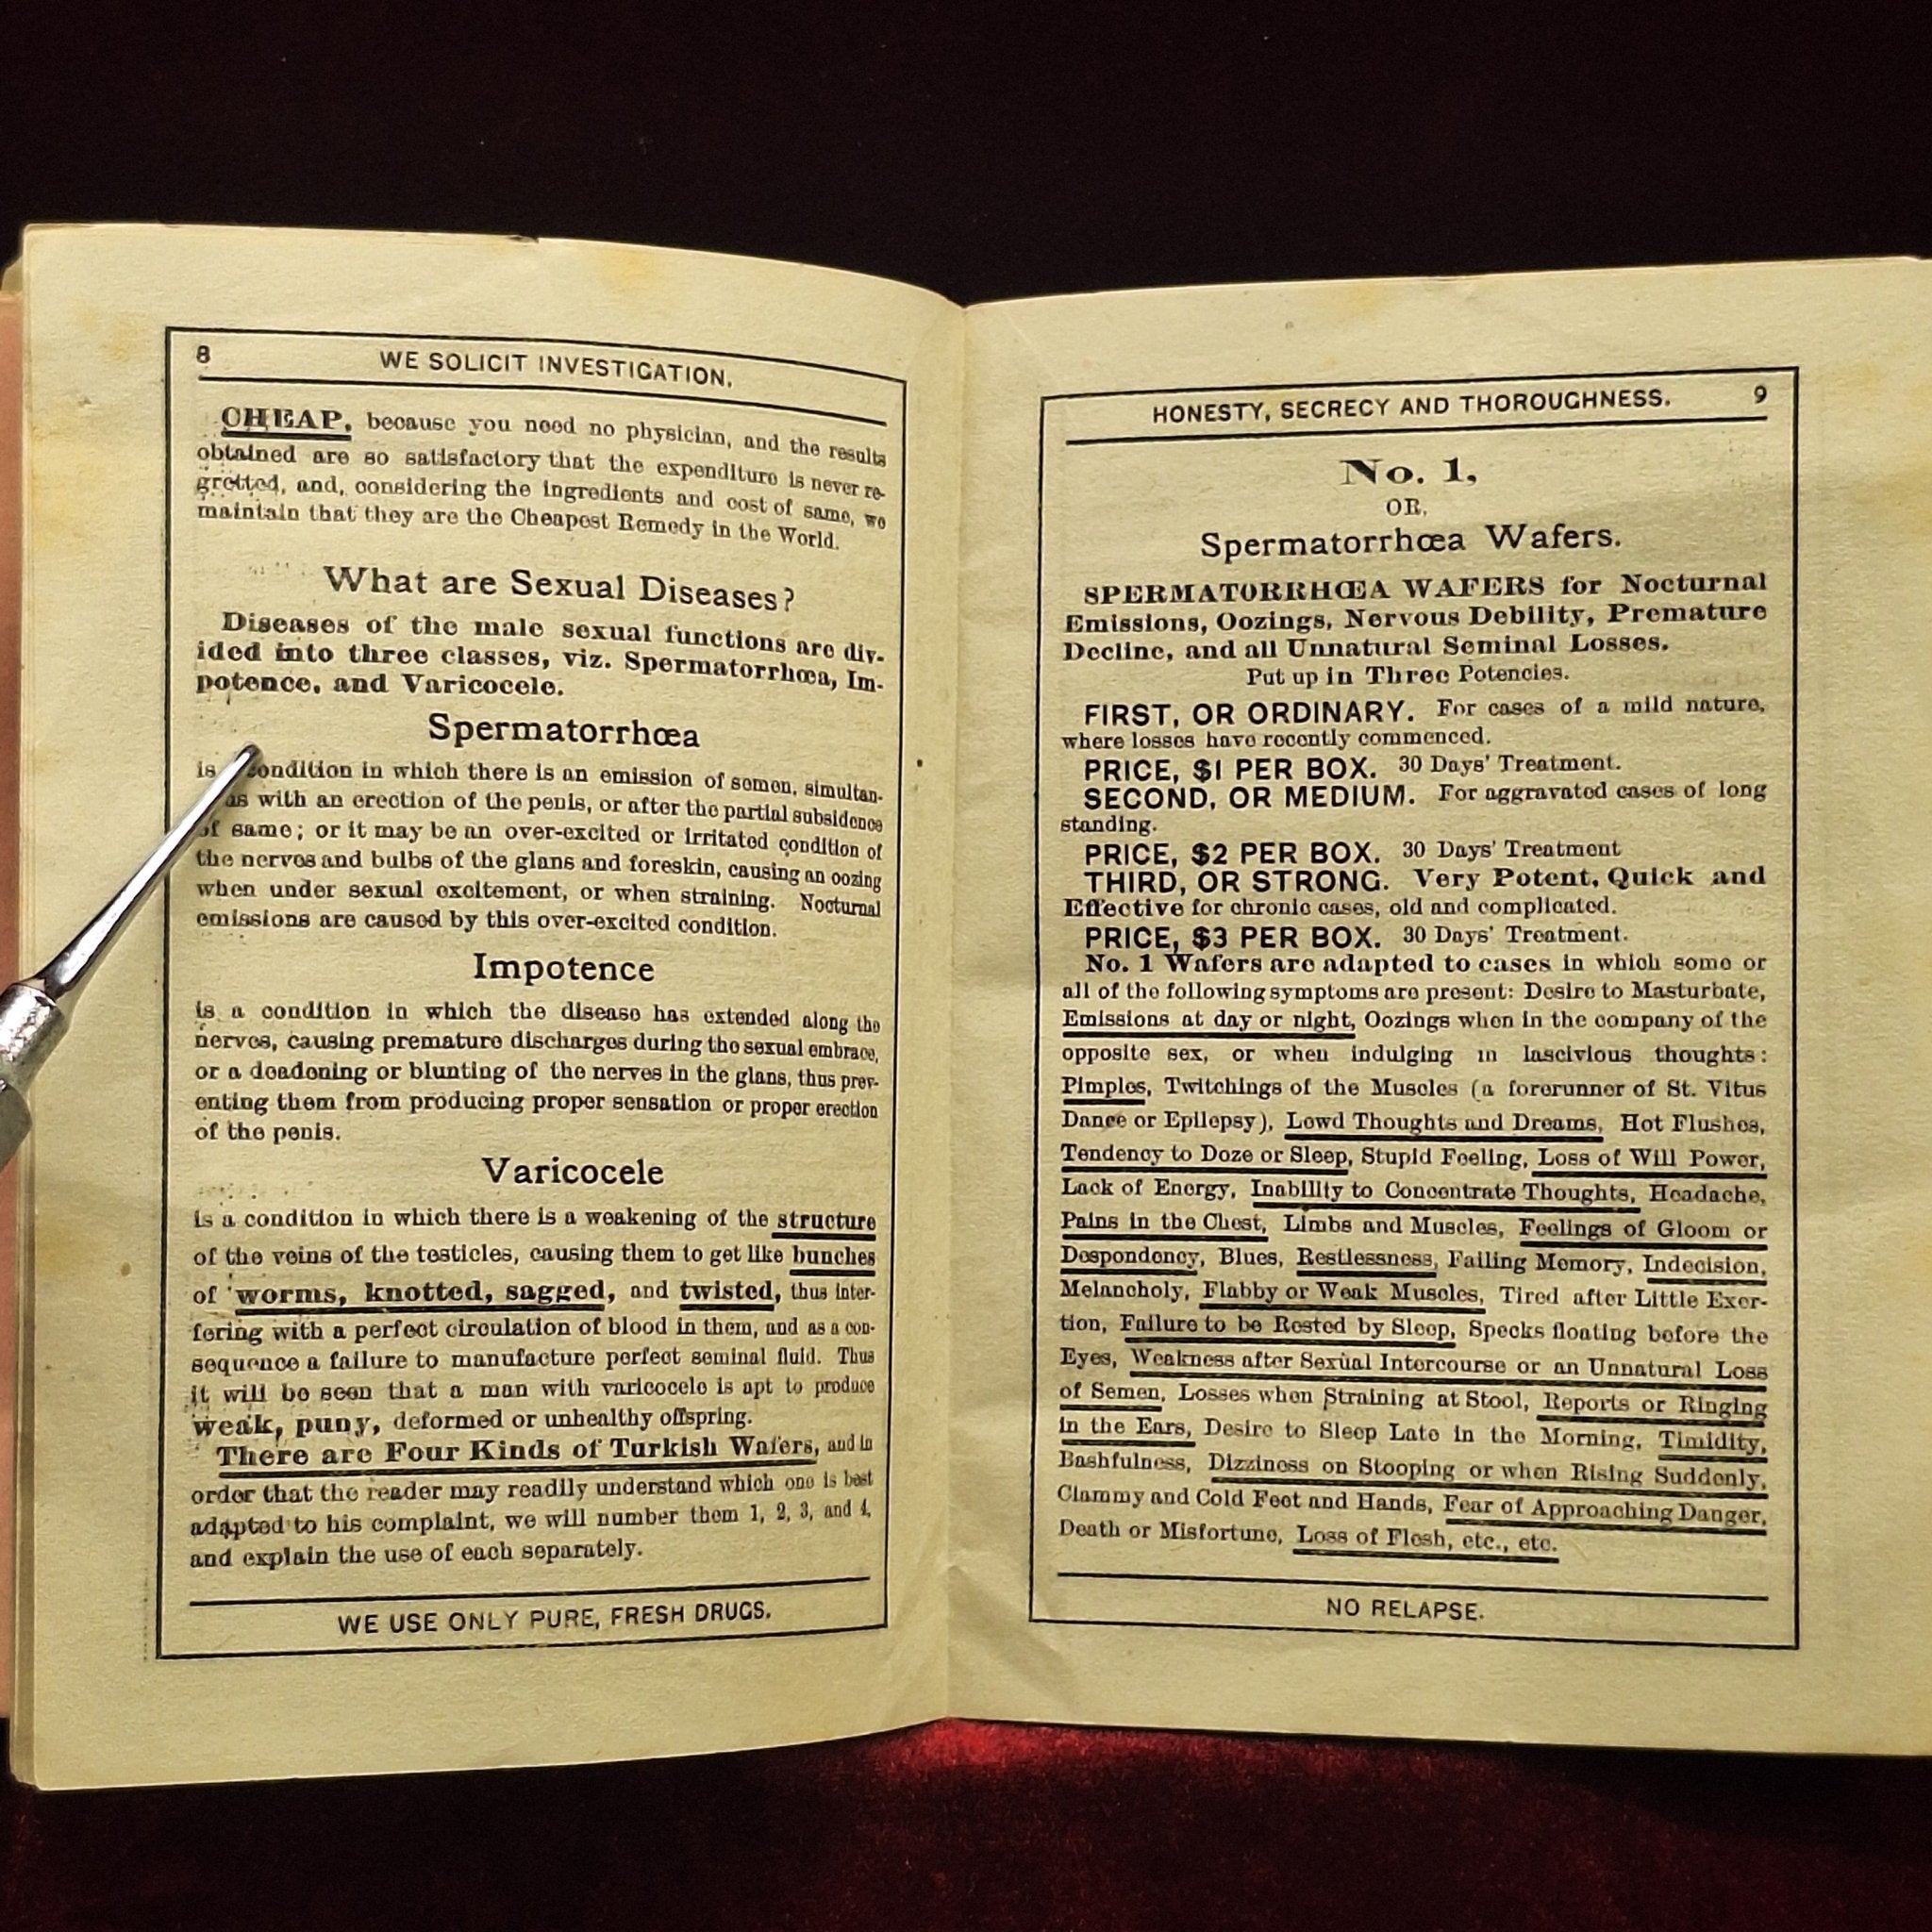 8
WE SOLICIT INVESTIGATION.
CHEAP, because you need no physician, and the results
obtained are so satisfactory that the expenditure is never re-
gretted, and, considering the ingredients and cost of same, we
maintain that they are the Cheapest Remedy in the World.
What are Sexual Diseases?
Diseases of the male sexual functions are div-
ided into three classes, viz. Spermatorrhœa, Im-
potence, and Varicocele.
Spermatorrhœa
is condition in which there is an emission of semen, simultan-
with an erection of the penis, or after the partial subsidence
of same; or it may be an over-excited or irritated condition of
the nerves and bulbs of the glans and foreskin, causing an oozing
when under sexual excitement, or when straining. Nocturnal
emissions are caused by this over-excited condition.
Impotence
is a condition in which the disease has extended along the
nerves, causing premature discharges during the sexual embrace,
or a deadening or blunting of the nerves in the glans, thus prev-
enting them from producing proper sensation or proper erection
of the penis.
Varicocele
is a condition in which there is a weakening of the structure
of the veins of the testicles, causing them to get like bunches
of worms, knotted, sagged, and twisted, thus inter-
fering with a perfect circulation of blood in them, and as a con-
sequence a failure to manufacture perfect seminal fluid. Thus
it will be seen that a man with varicocele is apt to produce
weak, puny, deformed or unhealthy offspring.
There are Four Kinds of Turkish Wafers, and in
order that the reader may readily understand which one is best
adapted to his complaint, we will number them 1, 2, 3, and 4,
and explain the use of each separately.
WE USE ONLY PURE, FRESH DRUGS.
HONESTY, SECRECY AND THOROUGHNESS.
9
No. 1,
OR,
Spermatorrhœa Wafers.
SPERMATORRHŒA WAFERS for Nocturnal
Emissions, Oozings, Nervous Debility, Premature
Decline, and all Unnatural Seminal Losses.
Put up in Three Potencies.
FIRST, OR ORDINARY. For cases of a mild nature,
where losses have recently commenced.
PRICE, $1 PER BOX. 30 Days' Treatment.
SECOND, OR MEDIUM. For aggravated cases of long
standing.
PRICE, $2 PER BOX. 30 Days' Treatment
THIRD, OR STRONG. Very Potent, Quick and
Effective for chronic cases, old and complicated.
PRICE, $3 PER BOX. 30 Days' Treatment.
No. 1 Wafers are adapted to cases in which some or
all of the following symptoms are present: Desire to Masturbate,
Emissions at day or night, Oozings when in the company of the
opposite sex, or when indulging in lascivious thoughts:
Pimples, Twitchings of the Muscles (a forerunner of St. Vitus
Dance or Epilepsy), Lewd Thoughts and Dreams, Hot Flushes,
Tendency to Doze or Sleep, Stupid Feeling, Loss of Will Power,
Lack of Energy, Inability to Concentrate Thoughts, Headache,
Pains in the Chest, Limbs and Muscles, Feelings of Gloom or
Despondency, Blues, Restlessness, Failing Memory, Indecision,
Melancholy, Flabby or Weak Muscles, Tired after Little Exer-
tion, Failure to be Rested by Sleep, Specks floating before the
Eyes, Weakness after Sexual Intercourse or an Unnatural Loss
of Semen, Losses when Straining at Stool, Reports or Ringing
in the Ears, Desire to Sleep Late in the Morning, Timidity,
Bashfulness, Dizziness on Stooping or when Rising Suddenly,
Clammy and Cold Feet and Hands, Fear of Approaching Danger,
Death or Misfortune, Loss of Flesh, etc., etc.
NO RELAPSE.